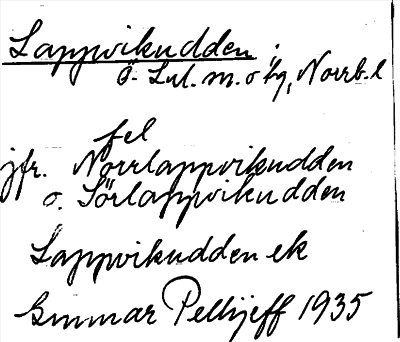 Lappvikudden
Ö. Lul. m. o tg, Norrb. l
fel
jfr. Norrlappvikudden
o. Sörlappvikudden
Lappvikudden ek
Gunnar Pellijeff 1935